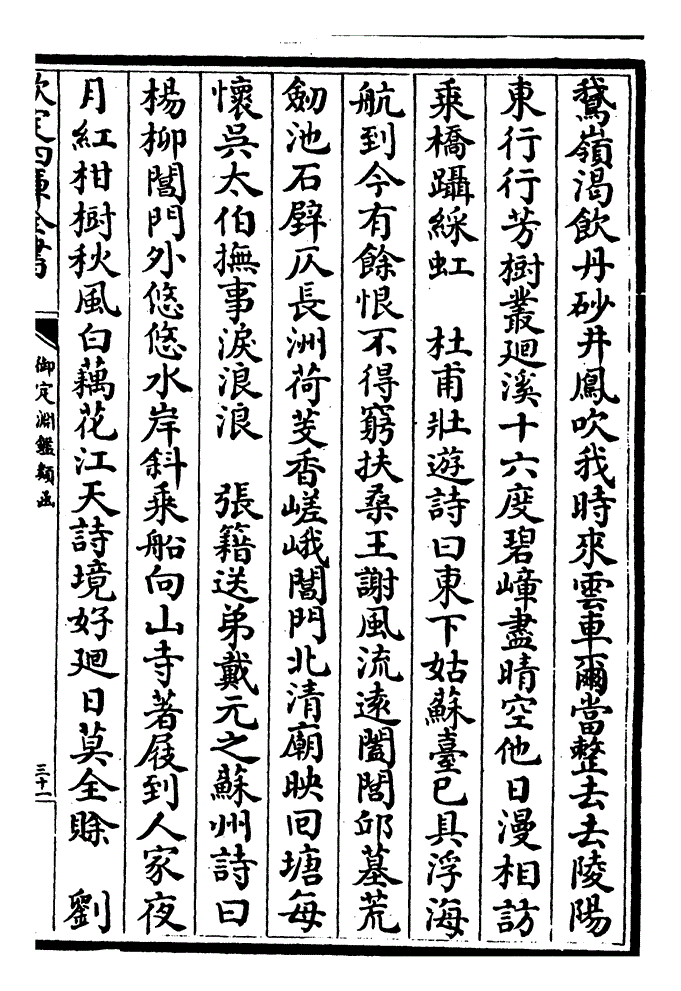 鵞嶺渴飲丹砂井鳳吹我時來雲車爾當整去去陵陽
東行行芳樹叢廻溪十六度碧嶂盡晴空他日漫相訪
乘橋躡綵虹　杜甫壯遊詩曰東下姑蘇臺已具浮海
航到今有餘恨不得窮扶桑王謝風流遠闔閭邱墓荒
劒池石壁仄長洲荷芰香嵯峨閶門北清廟映回塘每
懷吳太伯撫事淚浪浪　張籍送弟戴元之蘇州詩曰
楊柳閶門外悠悠水岸斜乘船向山寺著屐到人家夜
月紅柑樹秋風白藕花江天詩境好廻日莫全賒　劉
欽定四庫全書
御定淵鑑類函
三十一